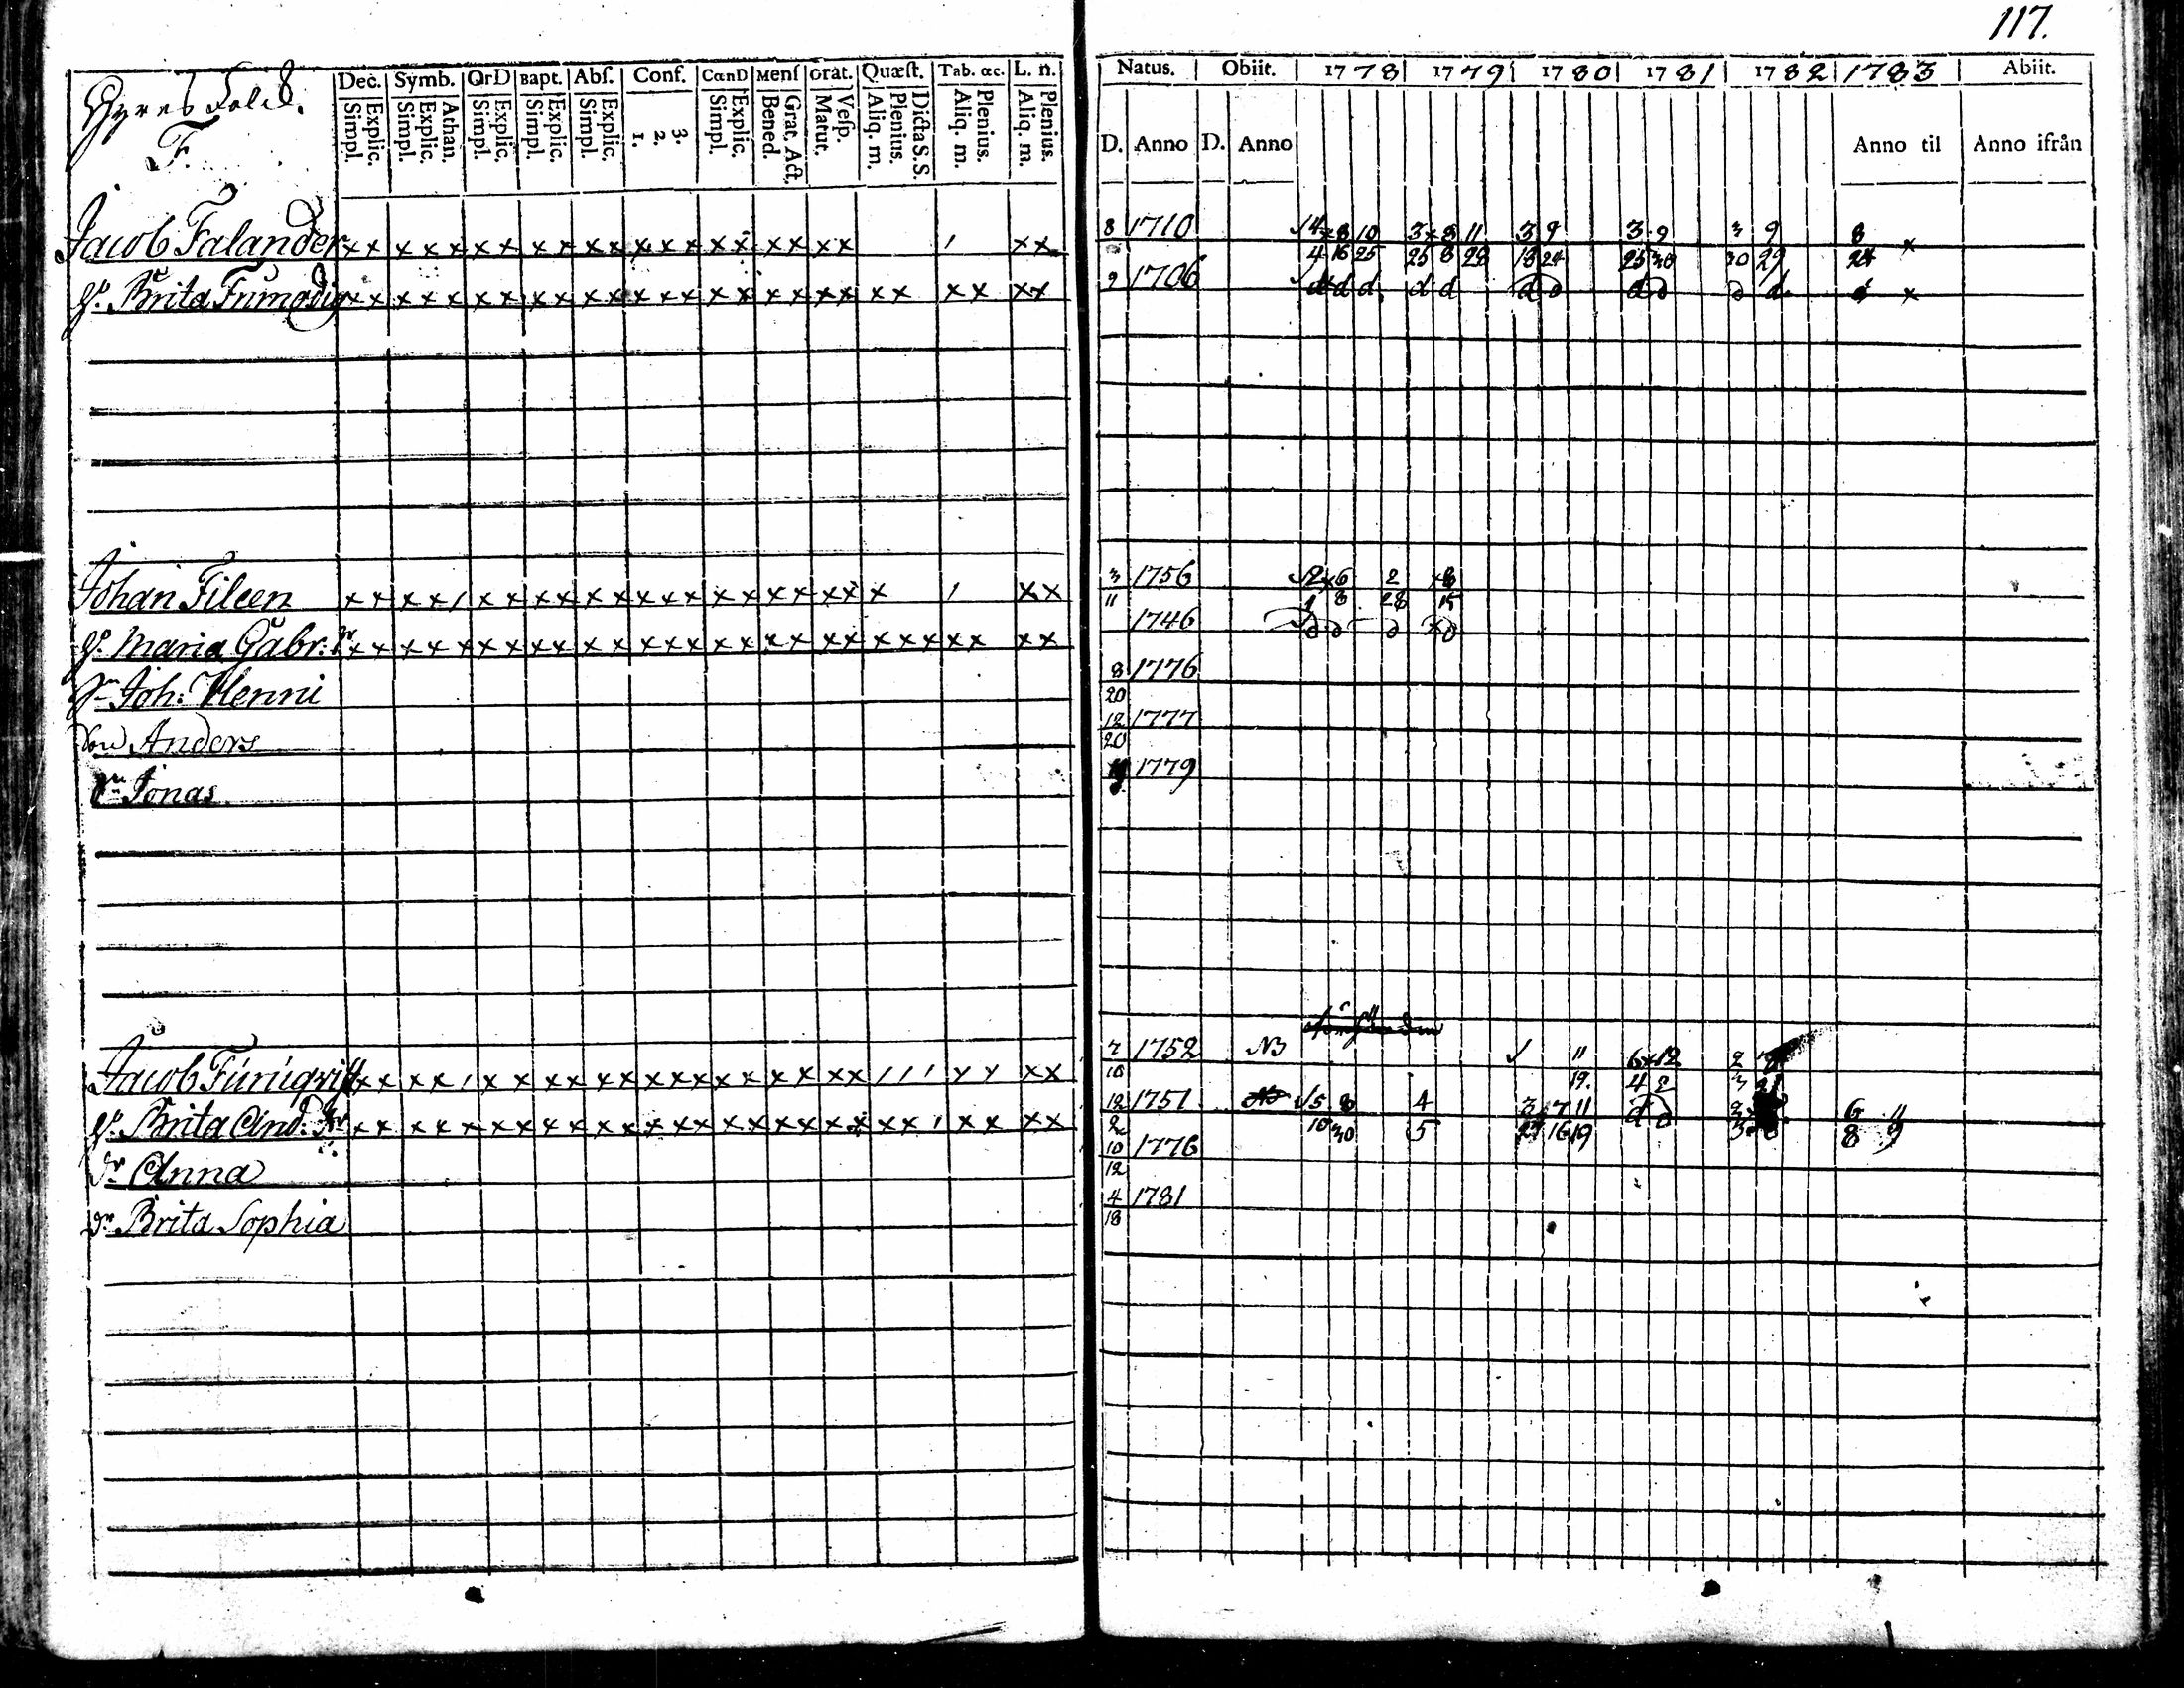 117.
Hyres Folck.
F.
Dec. Symb. OrD Bapt. Abſ. Conf. CœnD Menſ Orat. Quæſt. Tab. œc. L. n.
Explic. Simpl. Athan. Explic. Simpl. Explic. Simpl. Explic. Simpl. Explic. Simpl. 3. 2. 1. Explic. Simpl. Grat. Act. Bened. Veſp. Matut. Dicta S.S. Plenius. Aliq. m. Plenius. Aliq. m. Plenius. Aliq. m.
Natus. Obiit. 1778 1779 1780 1781 1782 1783 Abiit.
D. Anno D. Anno Anno til Anno ifrån
Jacob Falander 8 1710 4 x 8 10 3 x 8 11 3 9 3 9 3 9 8 x
4 16 25 25 8 28 18 24 25 30 30 29 24
H. Brita 9 1706 d d d d d d d d d d d x
Johan Fileen 3 1756 2 x 6 2 x 8
11 1 8 28 15
H. Maria Gabr: 1746
Sn Joh: Henric 8 1776
20
Son Anders 12 1777
20
Sn Jonas 1779
Jacob 7 1752 NB 11 6 x 12 2
10 19. 4 2 3 21
H. Brita And: Dr 12 1751 5 8 4 3 7 11 6 11
2 10 30 5 27 16 19 8 9
Dr Anna 10 1776
12
Dr Brita Sophia 4 1781
18